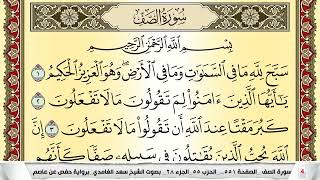 سُورَةُ الصَّفِّ
بِسْمِ اللَّهِ الرَّحْمَٰنِ الرَّحِيمِ
سَبَّحَ لِلَّهِ مَا فِي السَّمَٰوَٰتِ وَمَا فِي الْأَرْضِ ۖ وَهُوَ الْعَزِيزُ الْحَكِيمُ ١
يَٰٓأَيُّهَا الَّذِينَ ءَامَنُوا لِمَ تَقُولُونَ مَا لَا تَفْعَلُونَ ٢
كَبُرَ مَقْتًا عِندَ اللَّهِ أَن تَقُولُوا مَا لَا تَفْعَلُونَ ٣
إِنَّ اللَّهَ يُحِبُّ الَّذِينَ يُقَٰتِلُونَ فِي سَبِيلِهِۦ صَفًّا كَأَنَّهُم
سورة الصف الصفحة ٥٥١ الحزب ٥٥ الجزء ٢٨ بصوت الشيخ سعد الغامدي برواية حفص عن عاصم
4